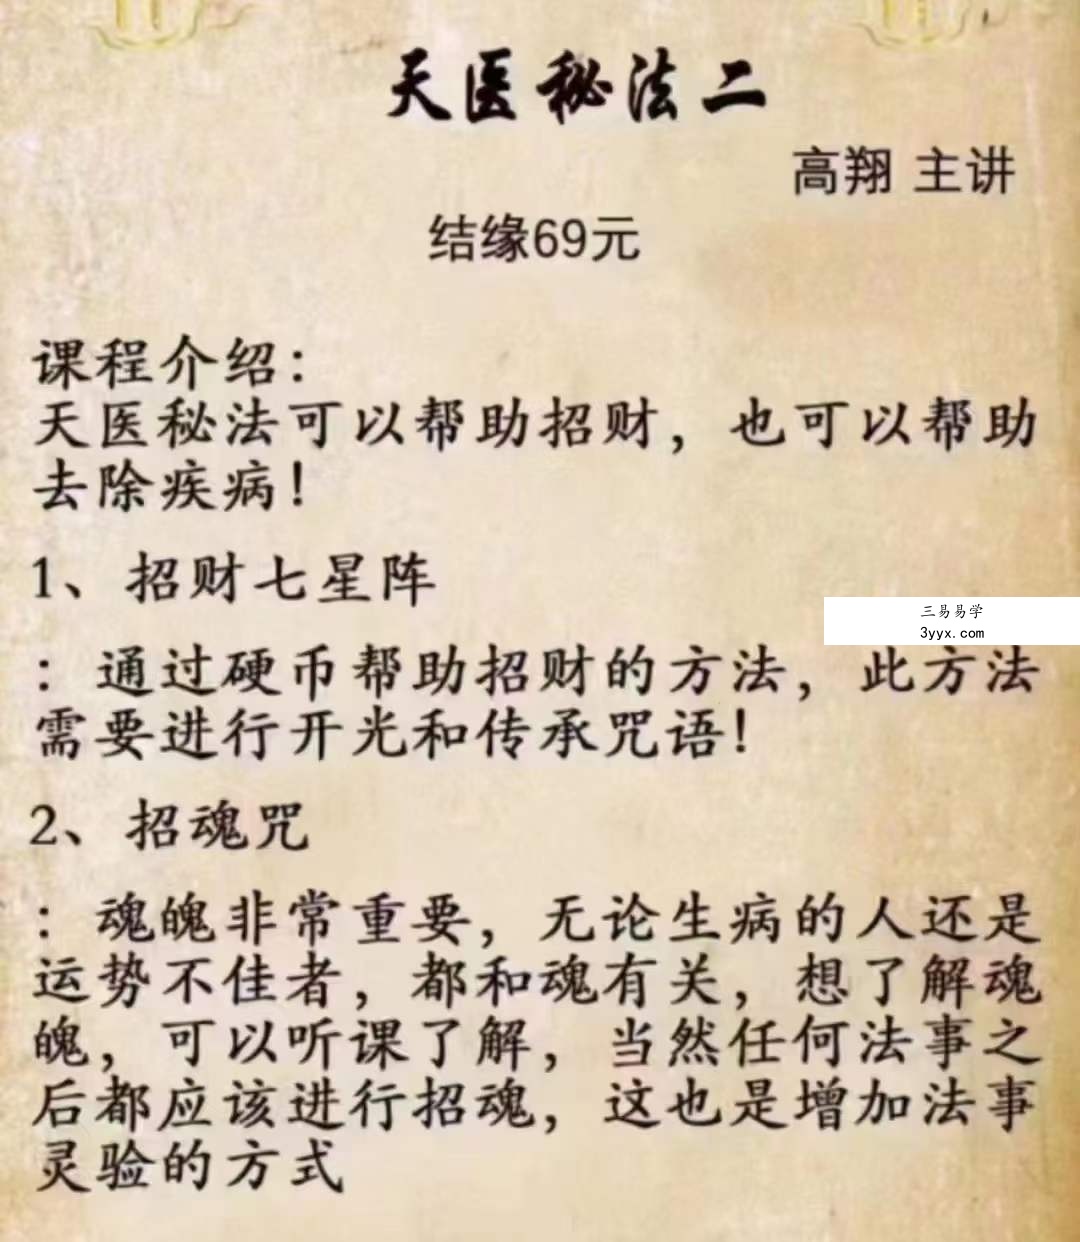 天医秘法二
高翔 主讲
结缘69元
课程介绍：
天医秘法可以帮助招财，也可以帮助
去除疾病！
1、招财七星阵
三易易学
3yyx.com
：通过硬币帮助招财的方法，此方法
需要进行开光和传承咒语！
2、招魂咒
：魂魄非常重要，无论生病的人还是
运势不佳者，都和魂有关，想了解魂
魄，可以听课了解，当然任何法事之
后都应该进行招魂，这也是增加法事
灵验的方式